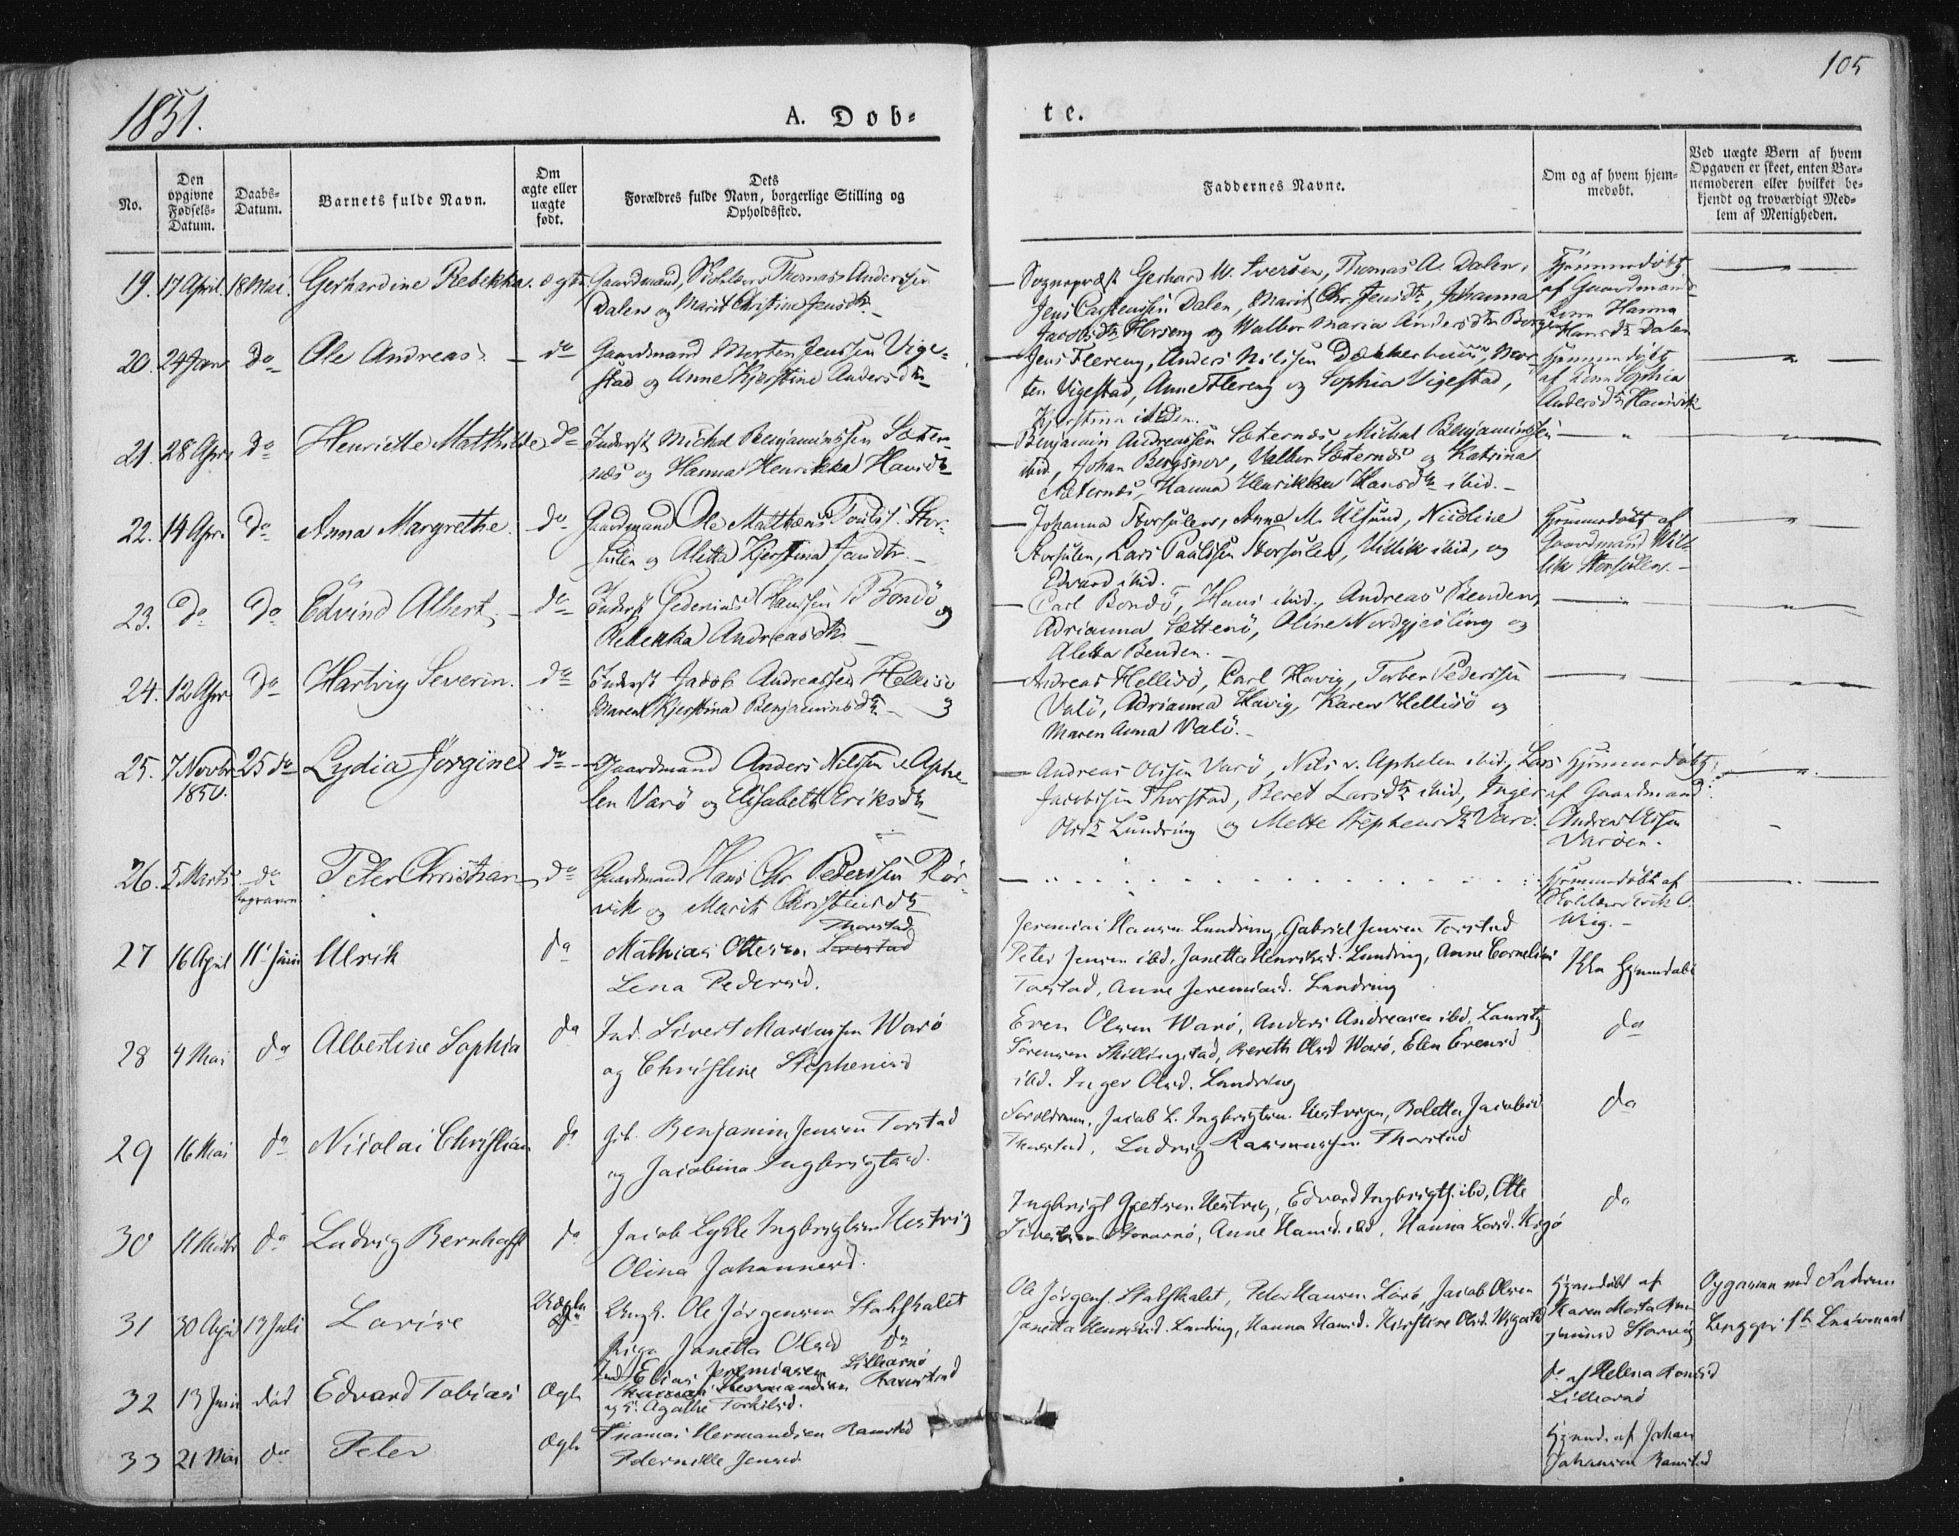 1851.
A. Døb-
te.
105
No.
Den opgivne Fødsels-Datum.
Daabs-Datum.
Barnets fulde Navn.
Om ægte eller uægte født.
Dets Forældres fulde Navn, borgerlige Stilling og Opholdssted.
Faddernes Navne.
Om og af hvem hjem-medøbt.
Ved uægte Børn af hvem Opgaven er skeet, enten Bar-nemoderen eller hvilket be-kjendt og troværdigt Med-lem af Menigheden.
19. 17 April. 18 Mai. Gerhardine Rebekka. ægte Gaardmand, Thomas Anderssen
Dalen og Marit Christine Jensdtr. —
— Sogneprest Gerhard W. Iversen, Thomas A. Dalen,
Jens Carstenssen Dalen, Marit Chr. Jensdtr, Johanna
Jacobsdtr Horseng og Walbor Maria Andersdtr
Hjemmedøbt
af Gaardmands
Kone Hanna
Hansdtr Dalen
20. 24 Jan do Ole Andreas. — do Gaardmand Morten Jenssen Vige-
stad og Anne Kjerstine Andersdtr
— Jens Flereng, Anders Nilssen Dækkerhuus, Mor-
ten Vigestad, Anne Flereng og Sophia Vigestad,
Kjerstina ibidem.
Hjemmedøbt
af Kone Sophia
Andersdtr
21. 28 Apr. do Henriette Mathilde do Inderst Michal Benjaminssen Sæter-
næs og Hanna Henrikka Hansdtr
— Benjamin Andreassen Sæternæs, Michal Benjaminssen
ibid, Johan Bergsnov, Valbor Sæternæs og Katrina
Sæternæs, Hanna Henrikka Hansdtr ibid. —
22. 14 Apr. do Anna Margrethe. do Gaardmand Ole Mathæus Poulss. Stor-
sulen og Aletta Kjerstina Jansdtr. —
— Johanna Storsulen, Anne M. Ulsund, Nicoline
Storsulen, Lars Paulssen Storsulen, Ullrik ibid, og
Edvard ibid.
Hjemmedøbt af
Gaardmand
Storsulen. —
23. do do Edvind Albert. — do Inderst Gedenias Hanssen Bondø og
Rebekka Andreasdtr —
— Carl Bondø, Hans ibid., Andreas Benden,
Adrianna Sættenø, Oline Nordgjesling og
Aletta Benden. —
24. 12 Apr. do Hartvig Severin. do Inderst Jacob Andreassen Hellisø
Maren Kjerstina Benjaminsdtr. —
— Andreas Hellisø, Carl Havig, Torber Pederssen
Valø, Adrianna Havig, Karen Hellisø og
Maren Anna Valø. —
25. 7 Novbr 1850. 25 do Lydia Jørgine do — Gaardmand Anders Nilssen v. Aphe-
len Varø og Elisabeth Eriksdtr
— Andreas Olssen Varø, Nils v. Aphelen ibid, Lars
Jacobssen Thorstad, Beret Larsdtr ibid, Inger
Olsdtr Lundring og Mette Stephensdtr Varø.
Hjemmedøbt
af Gaardmand
Andreas Olssen
Varøen. —
26. 5 Marts do Peter Christian do Gaardmand Hans Chr. Pederssen Rør-
vik og Marit Christensdtr
Hjemmedøbt af
Skolelærer
Wiig. —
27 16 April 11 Juni Ulrik do Mathias Ottesen Thorstad
Lena Pedersd.
Jeremias Hansen Lundring, Gabriel Jensen Torstad
Peter Jensen ibd, Janetta Henriksd. Lundring, Anne Cornelius
Torstad, Anne Jeremiasd. Lundring
28 4 Mai do Albertine Sophia do Ind. Sivert Mariussen Warø
og Christine Stephensd
Even Olsen Warø, Anders Andreasen ibd, Lauritz
Sørensen Skillingstad, Bereth Olsd Warø, Elen Evensd
ibd. Inger Olsd. Lundring
do
29 16 Mai do Nicolai Christian do Benjamin Jensen Torstad
og Jacobina Ingbrigtsd.
Forældrene, Jacob L. Ingbrigtsen Hestvigen, Boletta Jacobsd
Thorstad, Ludvig Rasmussen Thorstad
do
30 do Ludvig Bernhoft do Jacob Lykke Ingbrigtsen Hestvig
Olina Johannesd.
Hestvig, Edvard Ingbrigts. ibd, Otte
Anne Hansd. ibd, Hanna Larsd.
do
31 30 April 13 Juli Lovise Uægte Ungk. Ole Jørgensen
Pige Janetta Olsd do
Ole Jørgens. Peder Hansen Jacob Olsen
Janetta Henriksd. Lundring, Hanna Hansd. Kirstine Olsd.
Hjemdøbt af
Karen Marta
Opgaven ved Faderen
32 13 Juni død Edvard Tobias Ægte Ind. Elias Jeremiasen Lillearnø
Agathe Torkilsd.
do af Helena
Lillearnø
33 21 Mai do Peter Ægte Thomas Hermandsen Ramstad
Pedernille Jensd
Hjemd. af Johan
Johansen Ramstad